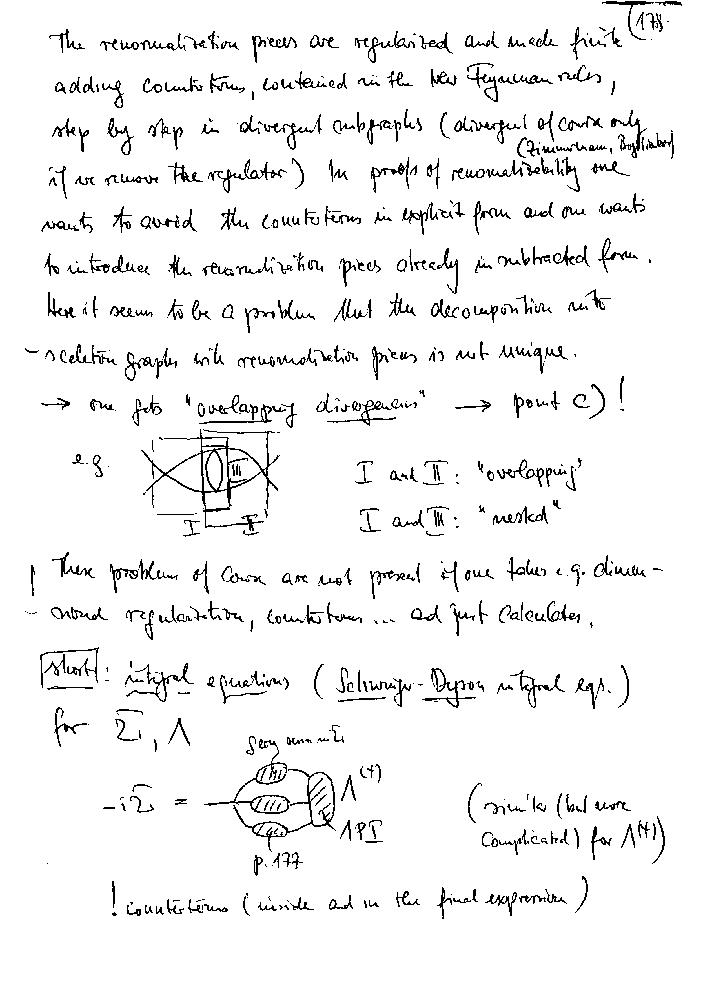 (178)
The renormalization pieces are regularized and made finite
adding counterterms, contained in the new Feynman rules,
step by step in divergent subgraphs (divergent of course only
(Zimmermann, Bogoliubov)
if we remove the regulator) In proofs of renormalizability one
wants to avoid the counterterms in explicit form and one wants
to introduce the renormalization pieces already in subtracted form.
Here it seems to be a problem that the decomposition into
- sceleton graphs with renormalization pieces is not unique.
→ one gets "overlapping divergencies" → point c) !
e.g.
III
I II
I and II: "overlapping"
I and III: "nested"
! These problems of course are not present if one takes e.g. dimen-
- sional regularization, counterterms ... and just calculates.
short: integral equations (Schwinger-Dyson integral eqs.)
for Σ, Λ
-iΣ =
Λ(4)
1PI
p. 177
(similar (but more
complicated) for Λ(4))
! counterterms (inside and in the final expression)